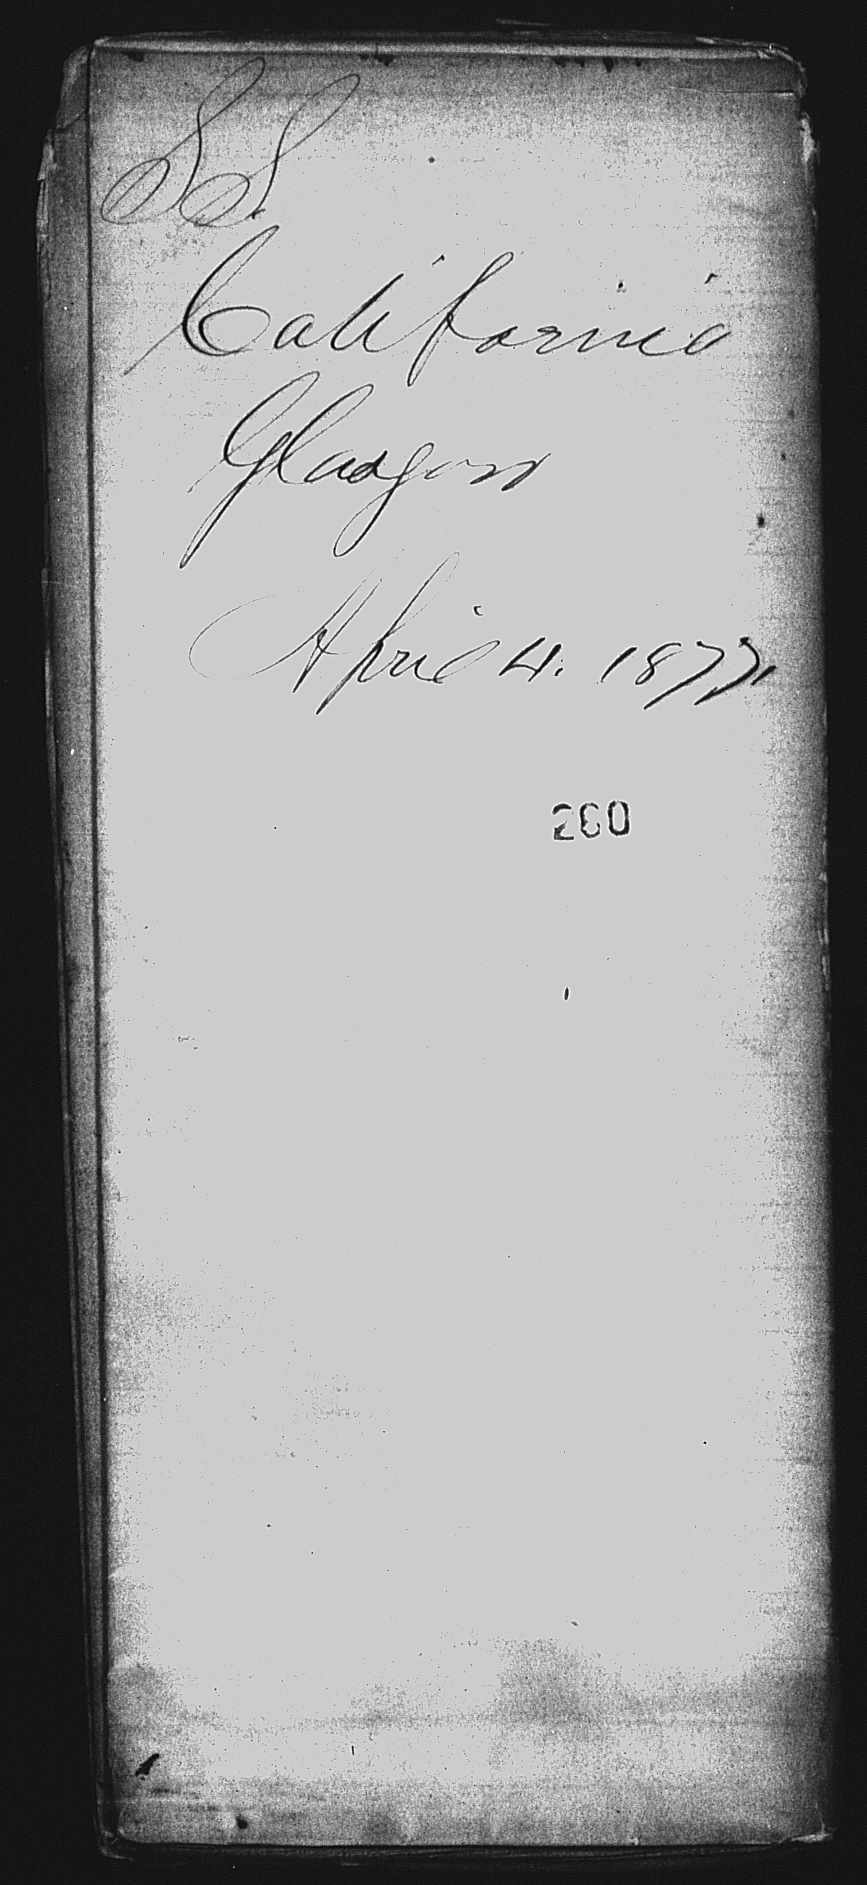 SS.
California
Glasgow
April 4. 1877.
260